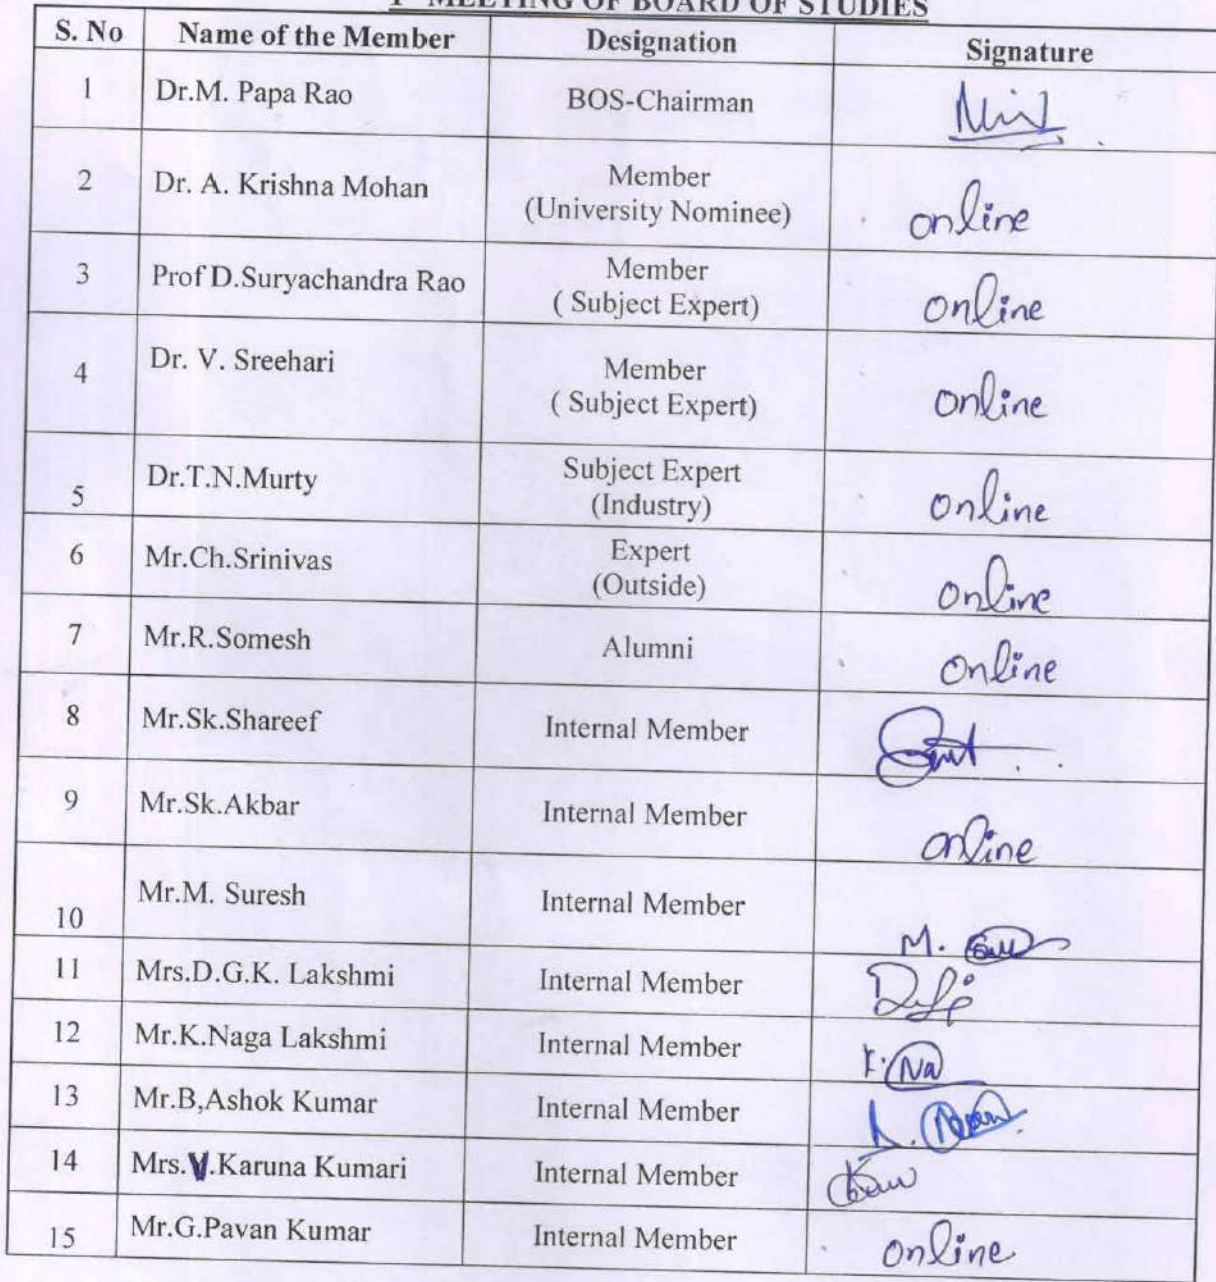 MEETING OF BOARD OF STUDIES
S. No Name of the Member Designation Signature
1 Dr.M. Papa Rao BOS-Chairman
2 Dr. A. Krishna Mohan Member
(University Nominee) online
3 Prof D.Suryachandra Rao Member
( Subject Expert) online
4 Dr. V. Sreehari Member
( Subject Expert) online
5 Dr.T.N.Murty Subject Expert
(Industry) online
6 Mr.Ch.Srinivas Expert
(Outside) online
7 Mr.R.Somesh Alumni online
8 Mr.Sk.Shareef Internal Member
9 Mr.Sk.Akbar Internal Member online
10 Mr.M. Suresh Internal Member M.
11 Mrs.D.G.K. Lakshmi Internal Member
12 Mr.K.Naga Lakshmi Internal Member K. Na
13 Mr.B,Ashok Kumar Internal Member
14 Mrs.V.Karuna Kumari Internal Member
15 Mr.G.Pavan Kumar Internal Member online